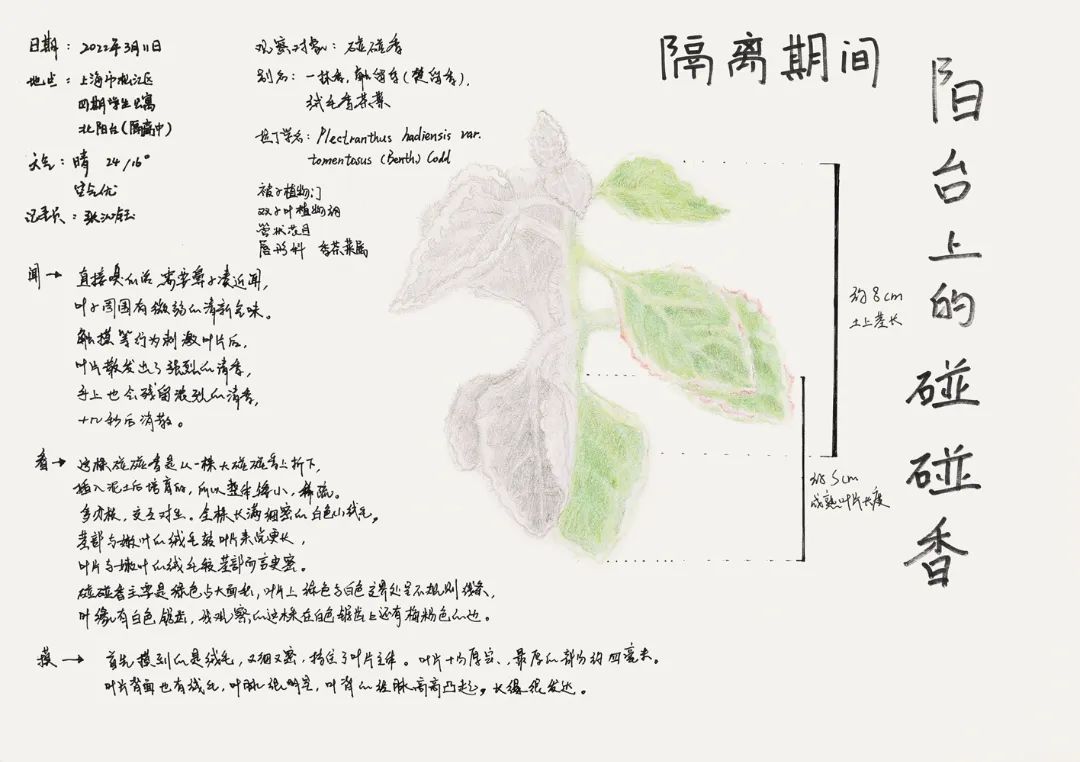 隔离期间
阳台上的碰碰香
日期：2022年3月11日
地点：上海市松江区
四期学生公寓
北阳台(隔离中)
天气：晴 24/16°
空气优
记录员：张
观察对象：碰碰香
别名：一抹香，触留香(楚留香)，
绒毛香茶菜
拉丁学名：Plectranthus hadiensis var.
tomentosus (Benth.) Codd
被子植物门
双子叶植物纲
管状花目
唇形科 香茶菜属
闻→ 直接嗅的话，需要鼻子凑近闻，
叶子周围有微弱的清新气味。
触摸等行为刺激叶片后，
叶片散发出了强烈的清香，
手上也会残留浓烈的清香，
十几秒后消散。
看→ 这株碰碰香是从一株大碰碰香上折下，
插入泥土后培育的，所以整体矮小、稀疏。
多分枝，交互对生。全株长满细密的白色小绒毛，
茎部与嫩叶的绒毛较叶片来说更长，
叶片与嫩叶的绒毛较茎部而言更密。
碰碰香主要是绿色占大面积，叶片上绿色与白色交界处呈不规则线条，
叶缘有白色锯齿，我观察的这株在白色锯齿上还有梅粉色的边。
摸→ 首先摸到的是绒毛，又细又密，挡住了叶片主体。叶片十分厚实，最厚的部分约四毫米。
叶片背面也有绒毛，叶脉很明显，叶背的经脉高高凸起，长得很发达。
约8cm
土上茎长
约5cm
成熟叶片长度